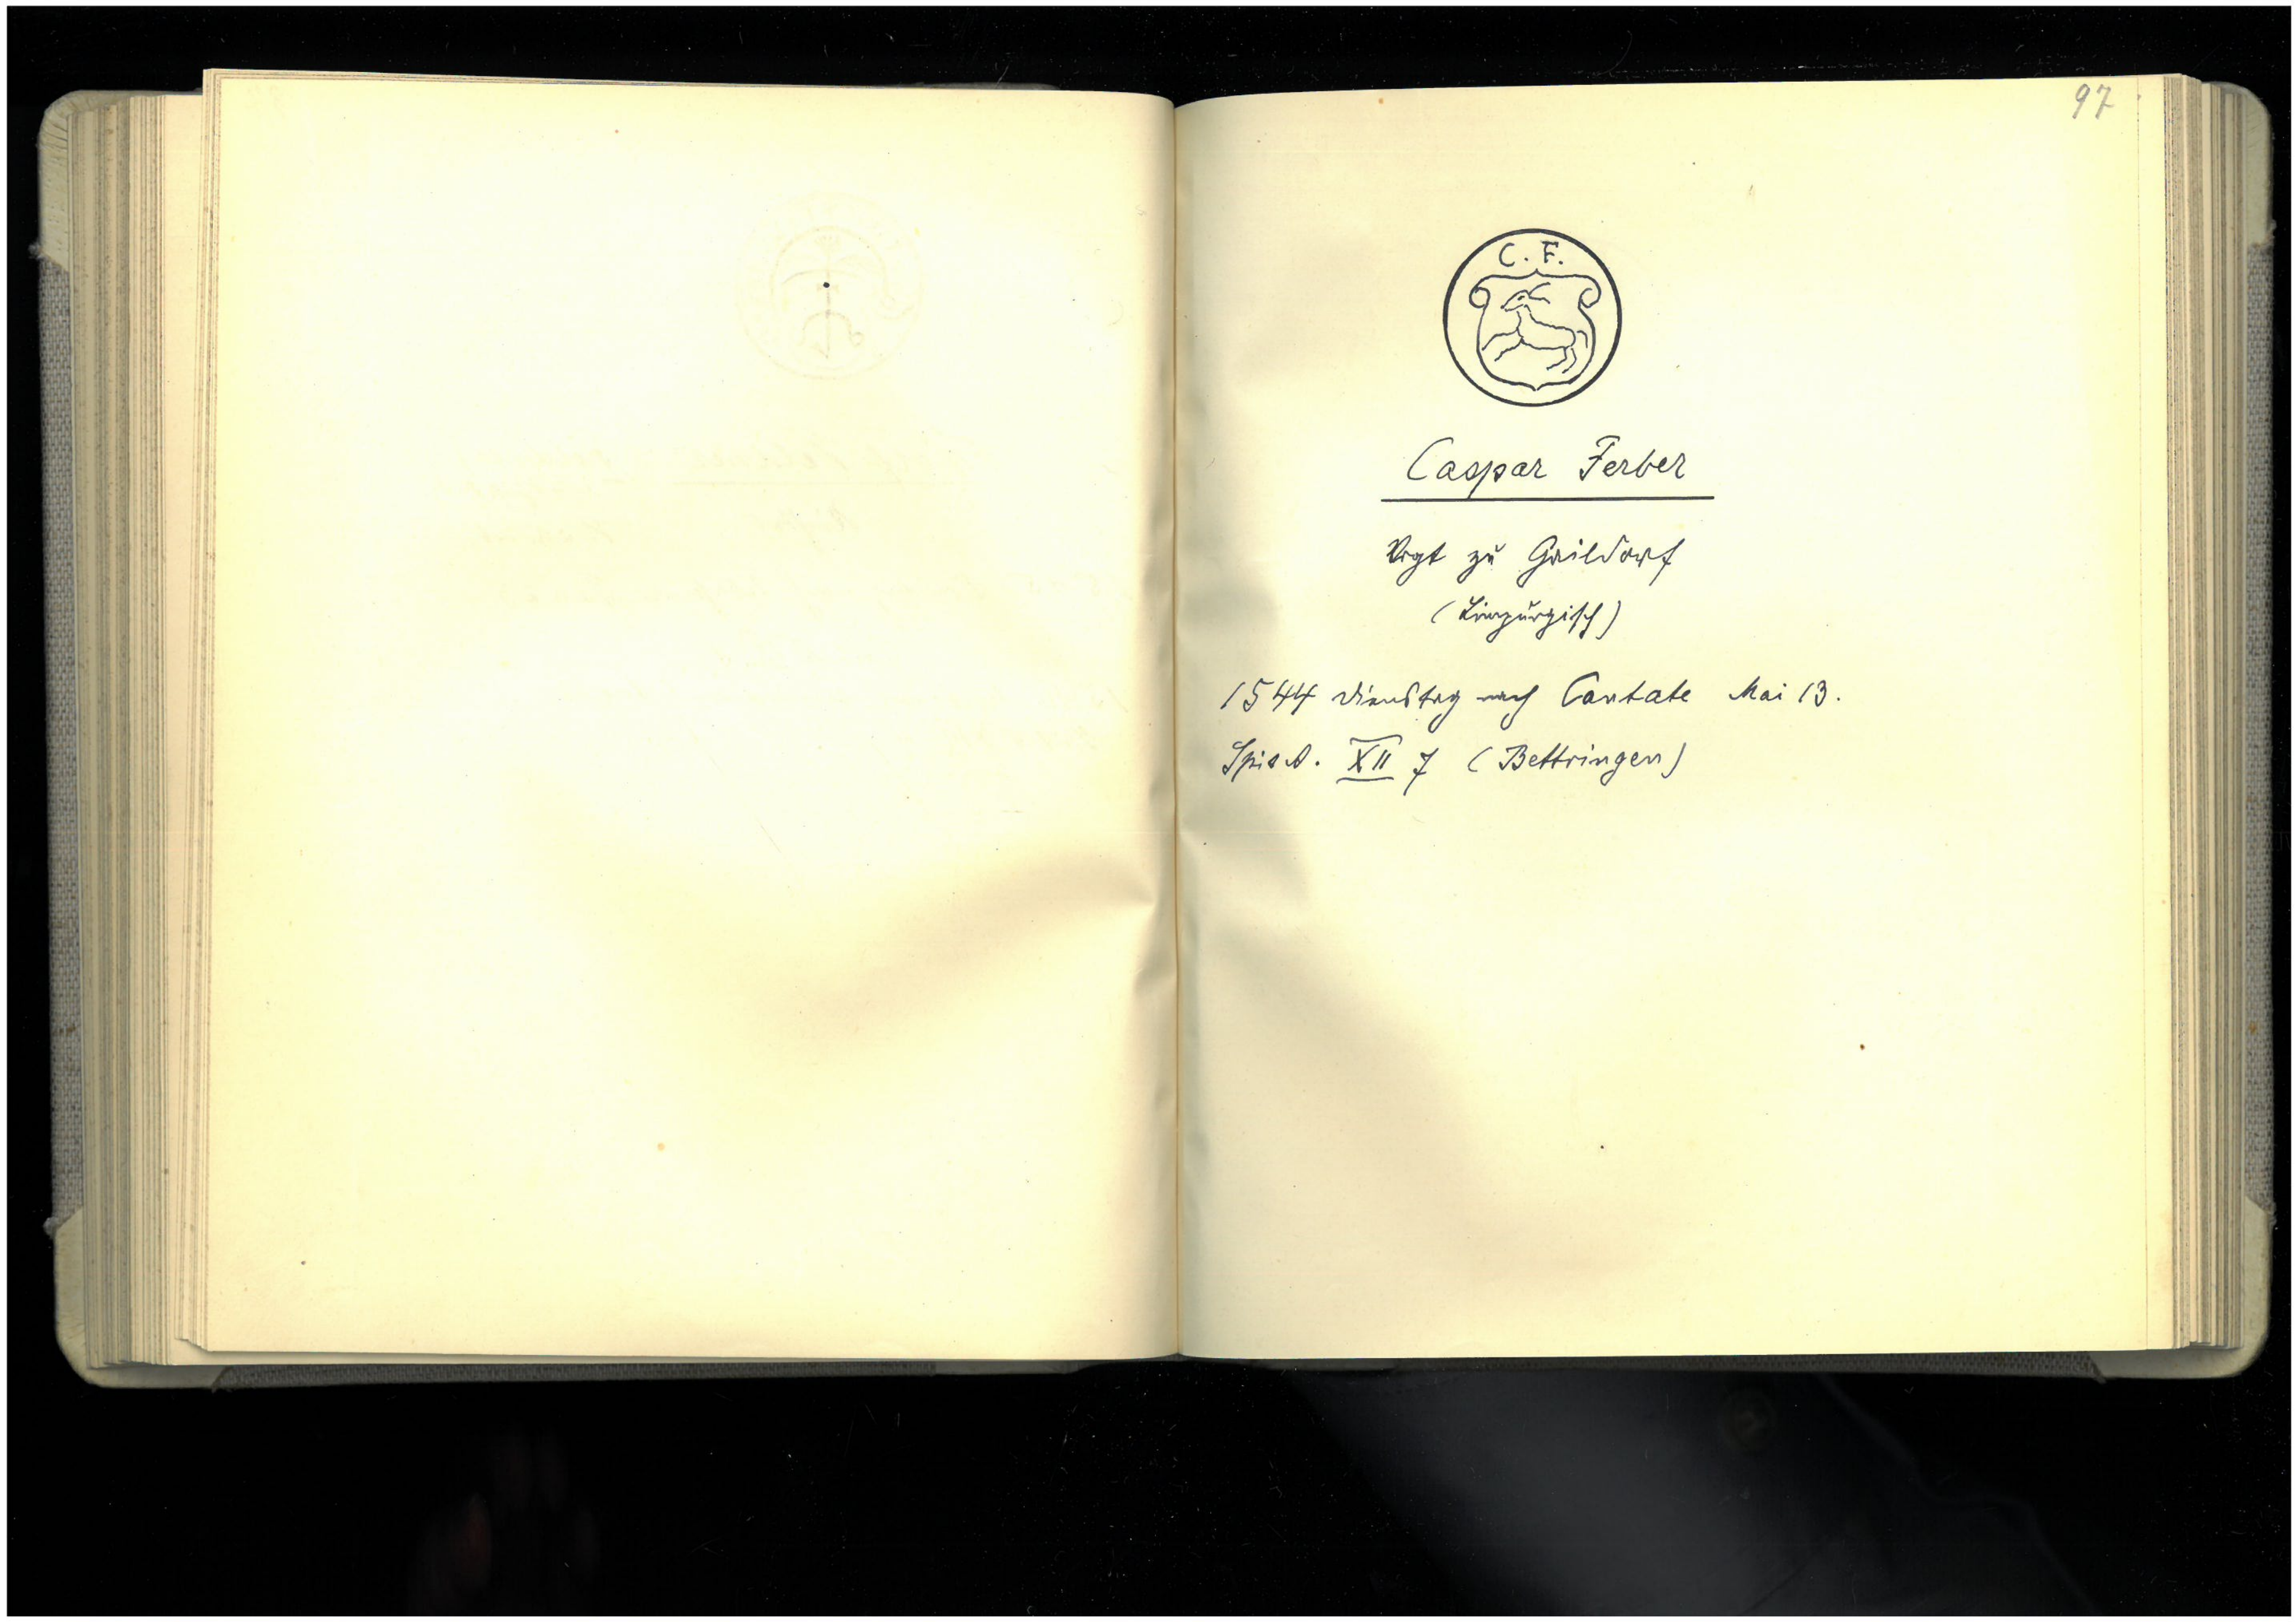 97
C. F.
Caspar Ferber
Vogt zu Gaildorf
(Limpurgisch)
1544 Dienstag nach Cantate Mai 13.
Spit. A. XII 7 (Bettringen)